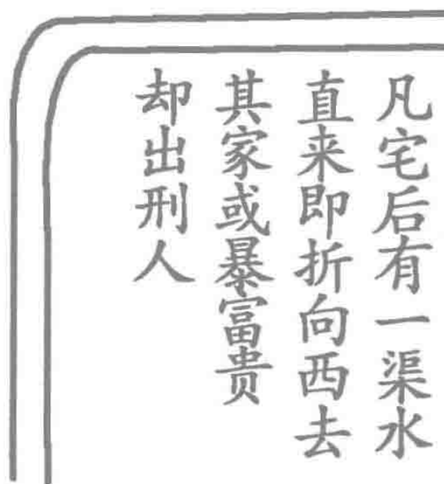 凡宅后有一渠水
直来即折向西去
其家或暴富贵
却出刑人